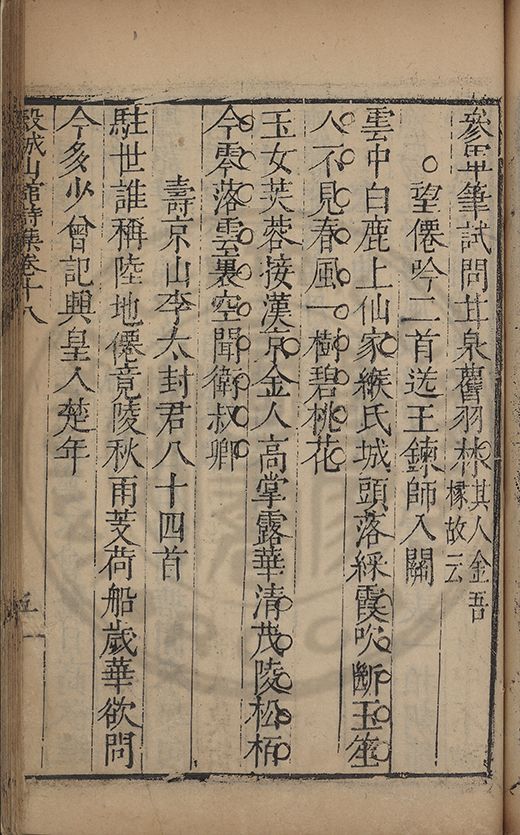 參軍筆試問甘泉舊羽林其人金吾
椽故云
望僊吟二首送王鍊師入關
雲中白鹿上仙家緱氏城頭落綵霞吹斷玉笙
人不見春風一樹碧桃花
玉女芙蓉接漢京金人高掌露華清茂陵松栢
今零落雲裏空聞衛叔卿
壽京山李太封君八十四首
駐世誰稱陸地僊竟陵秋雨芰荷船歲華欲問
今多少曾記興皇入楚年
穀城山館詩集卷十八
五